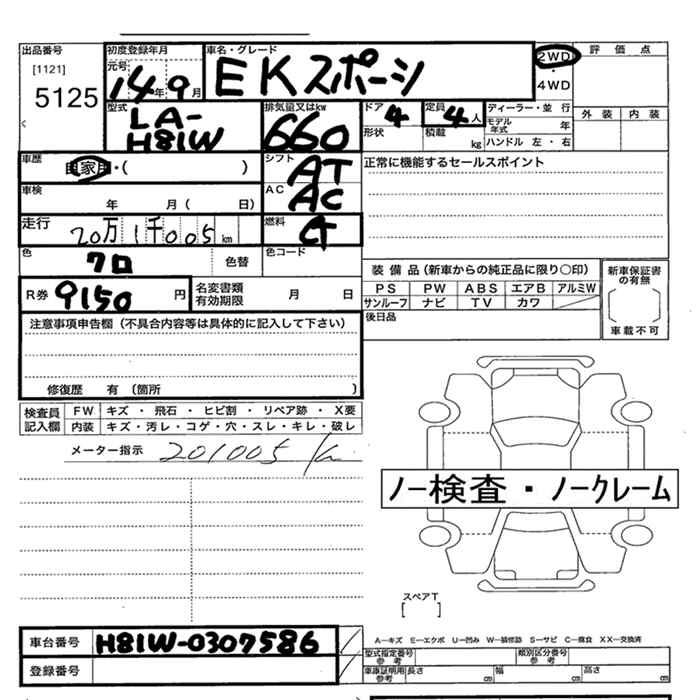 出品番号 初度登録年月 車名・グレード 2WD 評価点
[1121] 元号 14年 9月 EKスポーツ ・
5125 4WD
型式 排気量又はkw ドア 定員 ディーラー・並 行 外装 内装
LA- 660 4 4人 モデル年式 年
H81W 形状 積載 kg ハンドル 左・右
車歴 自家用・( ) シフト AT 正常に機能するセールスポイント
車検 年 月( 日) AC AC
走行 20万1千005km 燃料 G
色 クロ 色替 色コード
R券 9150円 名変書類有効期限 月 日
装備品(新車からの純正品に限り○印) 新車保証書の有無
PS PW ABS エアB アルミW
サンルーフ ナビ TV カワ
後日品 車載不可
注意事項申告欄(不具合内容等は具体的に記入して下さい)
修復歴 有(箇所 )
検査員記入欄 FW キズ・飛石・ヒビ割・リペア跡・X要
内装 キズ・汚レ・コゲ・穴・スレ・キレ・破レ
メーター指示 201005 km
ノー検査・ノークレーム
スペアT
[ ]
車台番号 H81W-0307586
登録番号
A―キズ E―エクボ U―凹み W―補修跡 S―サビ C―腐食 XX―交換済
型式指定番号参考 類別区分番号参考
車庫証明用参考 長さ cm 幅 cm 高さ cm